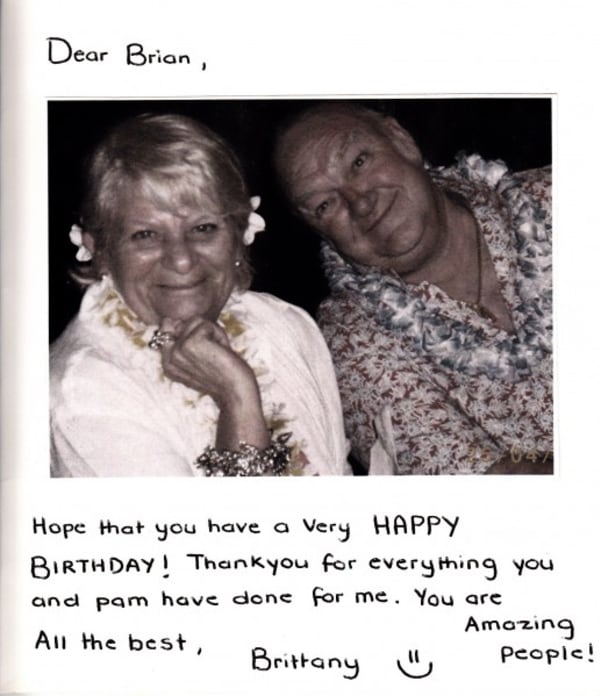 Dear Brian,
Hope that you have a very HAPPY
BIRTHDAY! Thankyou for everything you
and pam have done for me. You are
Amazing
People!
All the best,
Brittany